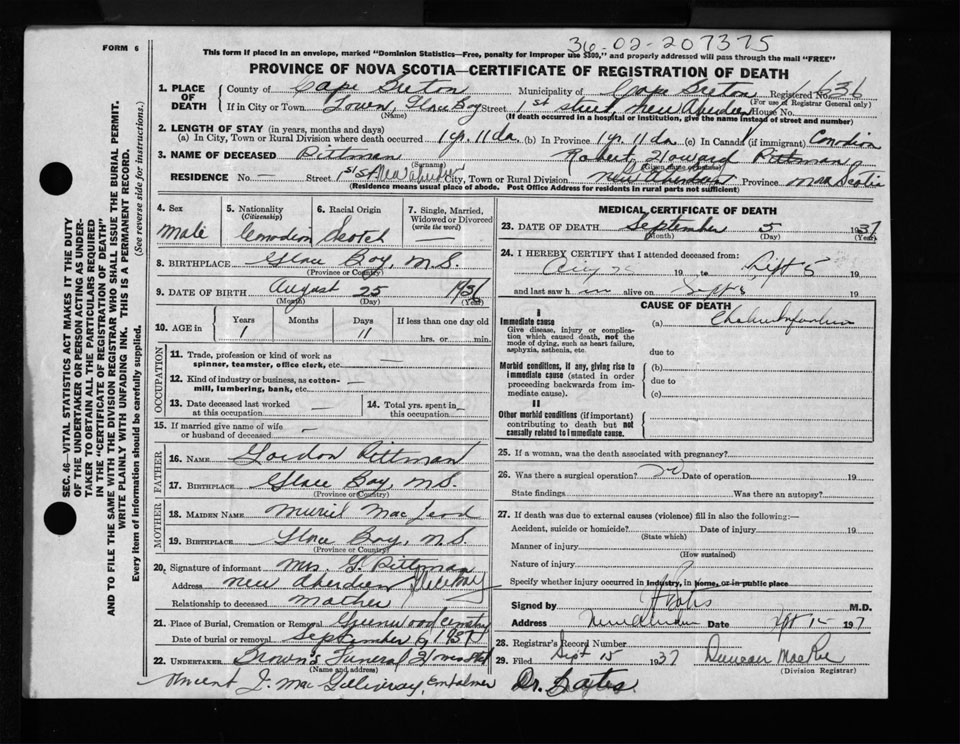 36-02-207375
FORM 6
This form if placed in an envelope, marked "Dominion Statistics—Free, penalty for improper use $300," and properly addressed will pass through the mail "FREE"
PROVINCE OF NOVA SCOTIA—CERTIFICATE OF REGISTRATION OF DEATH
1. PLACE OF DEATH
County of Cape Breton Municipality of Cape Breton Registered No. 636
(For use of Registrar General only)
If in City or Town Town, Glace Bay Street 1st Street, New Aberdeen House No.
(Name) (If death occurred in a hospital or institution, give the name instead of street and number)
2. LENGTH OF STAY (in years, months and days)
(a) In City, Town or Rural Division where death occurred 1 yr. 11 da. (b) In Province 1 yr. 11 da. (c) In Canada (if immigrant) Canadian
3. NAME OF DECEASED Pittman Robert Howard Pittman
(Surname)
RESIDENCE No. — Street 1st St New Aberdeen City, Town or Rural Division New Aberdeen Province Nova Scotia
(Residence means usual place of abode. Post Office Address for residents in rural parts not sufficient)
4. Sex Male
5. Nationality (Citizenship) Canadian
6. Racial Origin Scotch
7. Single, Married, Widowed or Divorced (write the word) —
8. BIRTHPLACE Glace Bay, N.S.
(Province or Country)
9. DATE OF BIRTH August 25 1936
(Month) (Day) (Year)
10. AGE in Years Months Days If less than one day old
1 11 hrs. or min.
OCCUPATION
11. Trade, profession or kind of work as spinner, teamster, office clerk, etc. —
12. Kind of industry or business, as cotton-mill, lumbering, bank, etc. —
13. Date deceased last worked at this occupation —
14. Total yrs. spent in this occupation —
15. If married give name of wife or husband of deceased —
FATHER
16. NAME Gordon Pittman
17. BIRTHPLACE Glace Bay, N.S.
(Province or Country)
MOTHER
18. MAIDEN NAME Muriel Mac Leod
19. BIRTHPLACE Glace Bay, N.S.
(Province or Country)
20. Signature of informant Mrs. G. Pittman
Address New Aberdeen Glace Bay
Relationship to deceased mother
21. Place of Burial, Cremation or Removal Greenwood Cemetry
Date of burial or removal September 6, 1937
22. UNDERTAKER Brown's Funeral Home Ltd
(Name and address)
Vincent J. Mac Gillivray, Embalmer
MEDICAL CERTIFICATE OF DEATH
23. DATE OF DEATH September 5 1937
(Month) (Day) (Year)
24. I HEREBY CERTIFY that I attended deceased from:
Aug 19 to Sept 5 19
and last saw him alive on Sept 5 19
CAUSE OF DEATH
I
Immediate cause
Give disease, injury or complication which caused death, not the mode of dying, such as heart failure, asphyxia, asthenia, etc.
(a) Cholera Infantum
due to
Morbid conditions, if any, giving rise to immediate cause (stated in order proceeding backwards from immediate cause).
(b)
due to
(c)
II
Other morbid conditions (if important) contributing to death but not causally related to immediate cause.
25. If a woman, was the death associated with pregnancy?
26. Was there a surgical operation? no Date of operation 19
State findings Was there an autopsy?
27. If death was due to external causes (violence) fill in also the following:—
Accident, suicide or homicide? Date of injury 19
(State which)
Manner of injury
(How sustained)
Nature of injury
Specify whether injury occurred in industry, in home, or in public place
Signed by M.D.
Address New Aberdeen Date Sept 15 1937
28. Registrar's Record Number
29. Filed Sept 15 1937 Duncan MacRae
(Division Registrar)
Dr. Bates.
SEC. 46—VITAL STATISTICS ACT MAKES IT THE DUTY
OF THE UNDERTAKER OR PERSON ACTING AS UNDER-
TAKER TO OBTAIN ALL THE PARTICULARS REQUIRED
IN THE "CERTIFICATE OF REGISTRATION OF DEATH"
AND TO FILE THE SAME WITH THE DIVISION REGISTRAR WHO SHALL ISSUE THE BURIAL PERMIT.
WRITE PLAINLY WITH UNFADING INK. THIS IS A PERMANENT RECORD.
Every item of information should be carefully supplied. (See reverse side for instructions.)